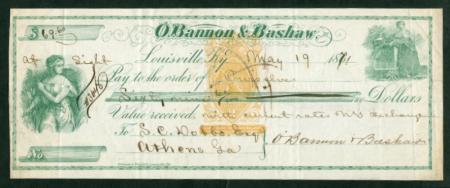 O'Bannon & Bashaw,
$ 69.
At Sight Louisville, Ky. May 19 1871
Pay to the order of Ourselves
Sixty nine Dollars
Value received, with current rate of Exchange
To S.C. Dobbs Esq
Athens Ga O'Bannon & Bashaw